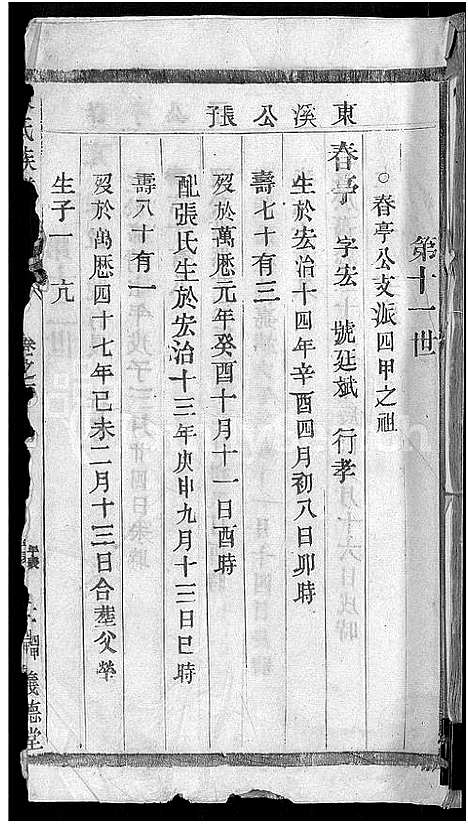 第十一世
○春亭公支派四甲之祖
東溪公張子
春亭 字宏十 號廷斌 行孝
生於宏治十四年辛酉四月初八日卯時
壽七十有三
歿於萬厯元年癸酉十月十一日酉時
配張氏生於宏治十三年庚申九月十三日巳時
壽八十有一
歿於萬厯四十七年己未二月十三日合塟父塋
生子一 亢
氏族
卷之
義德堂